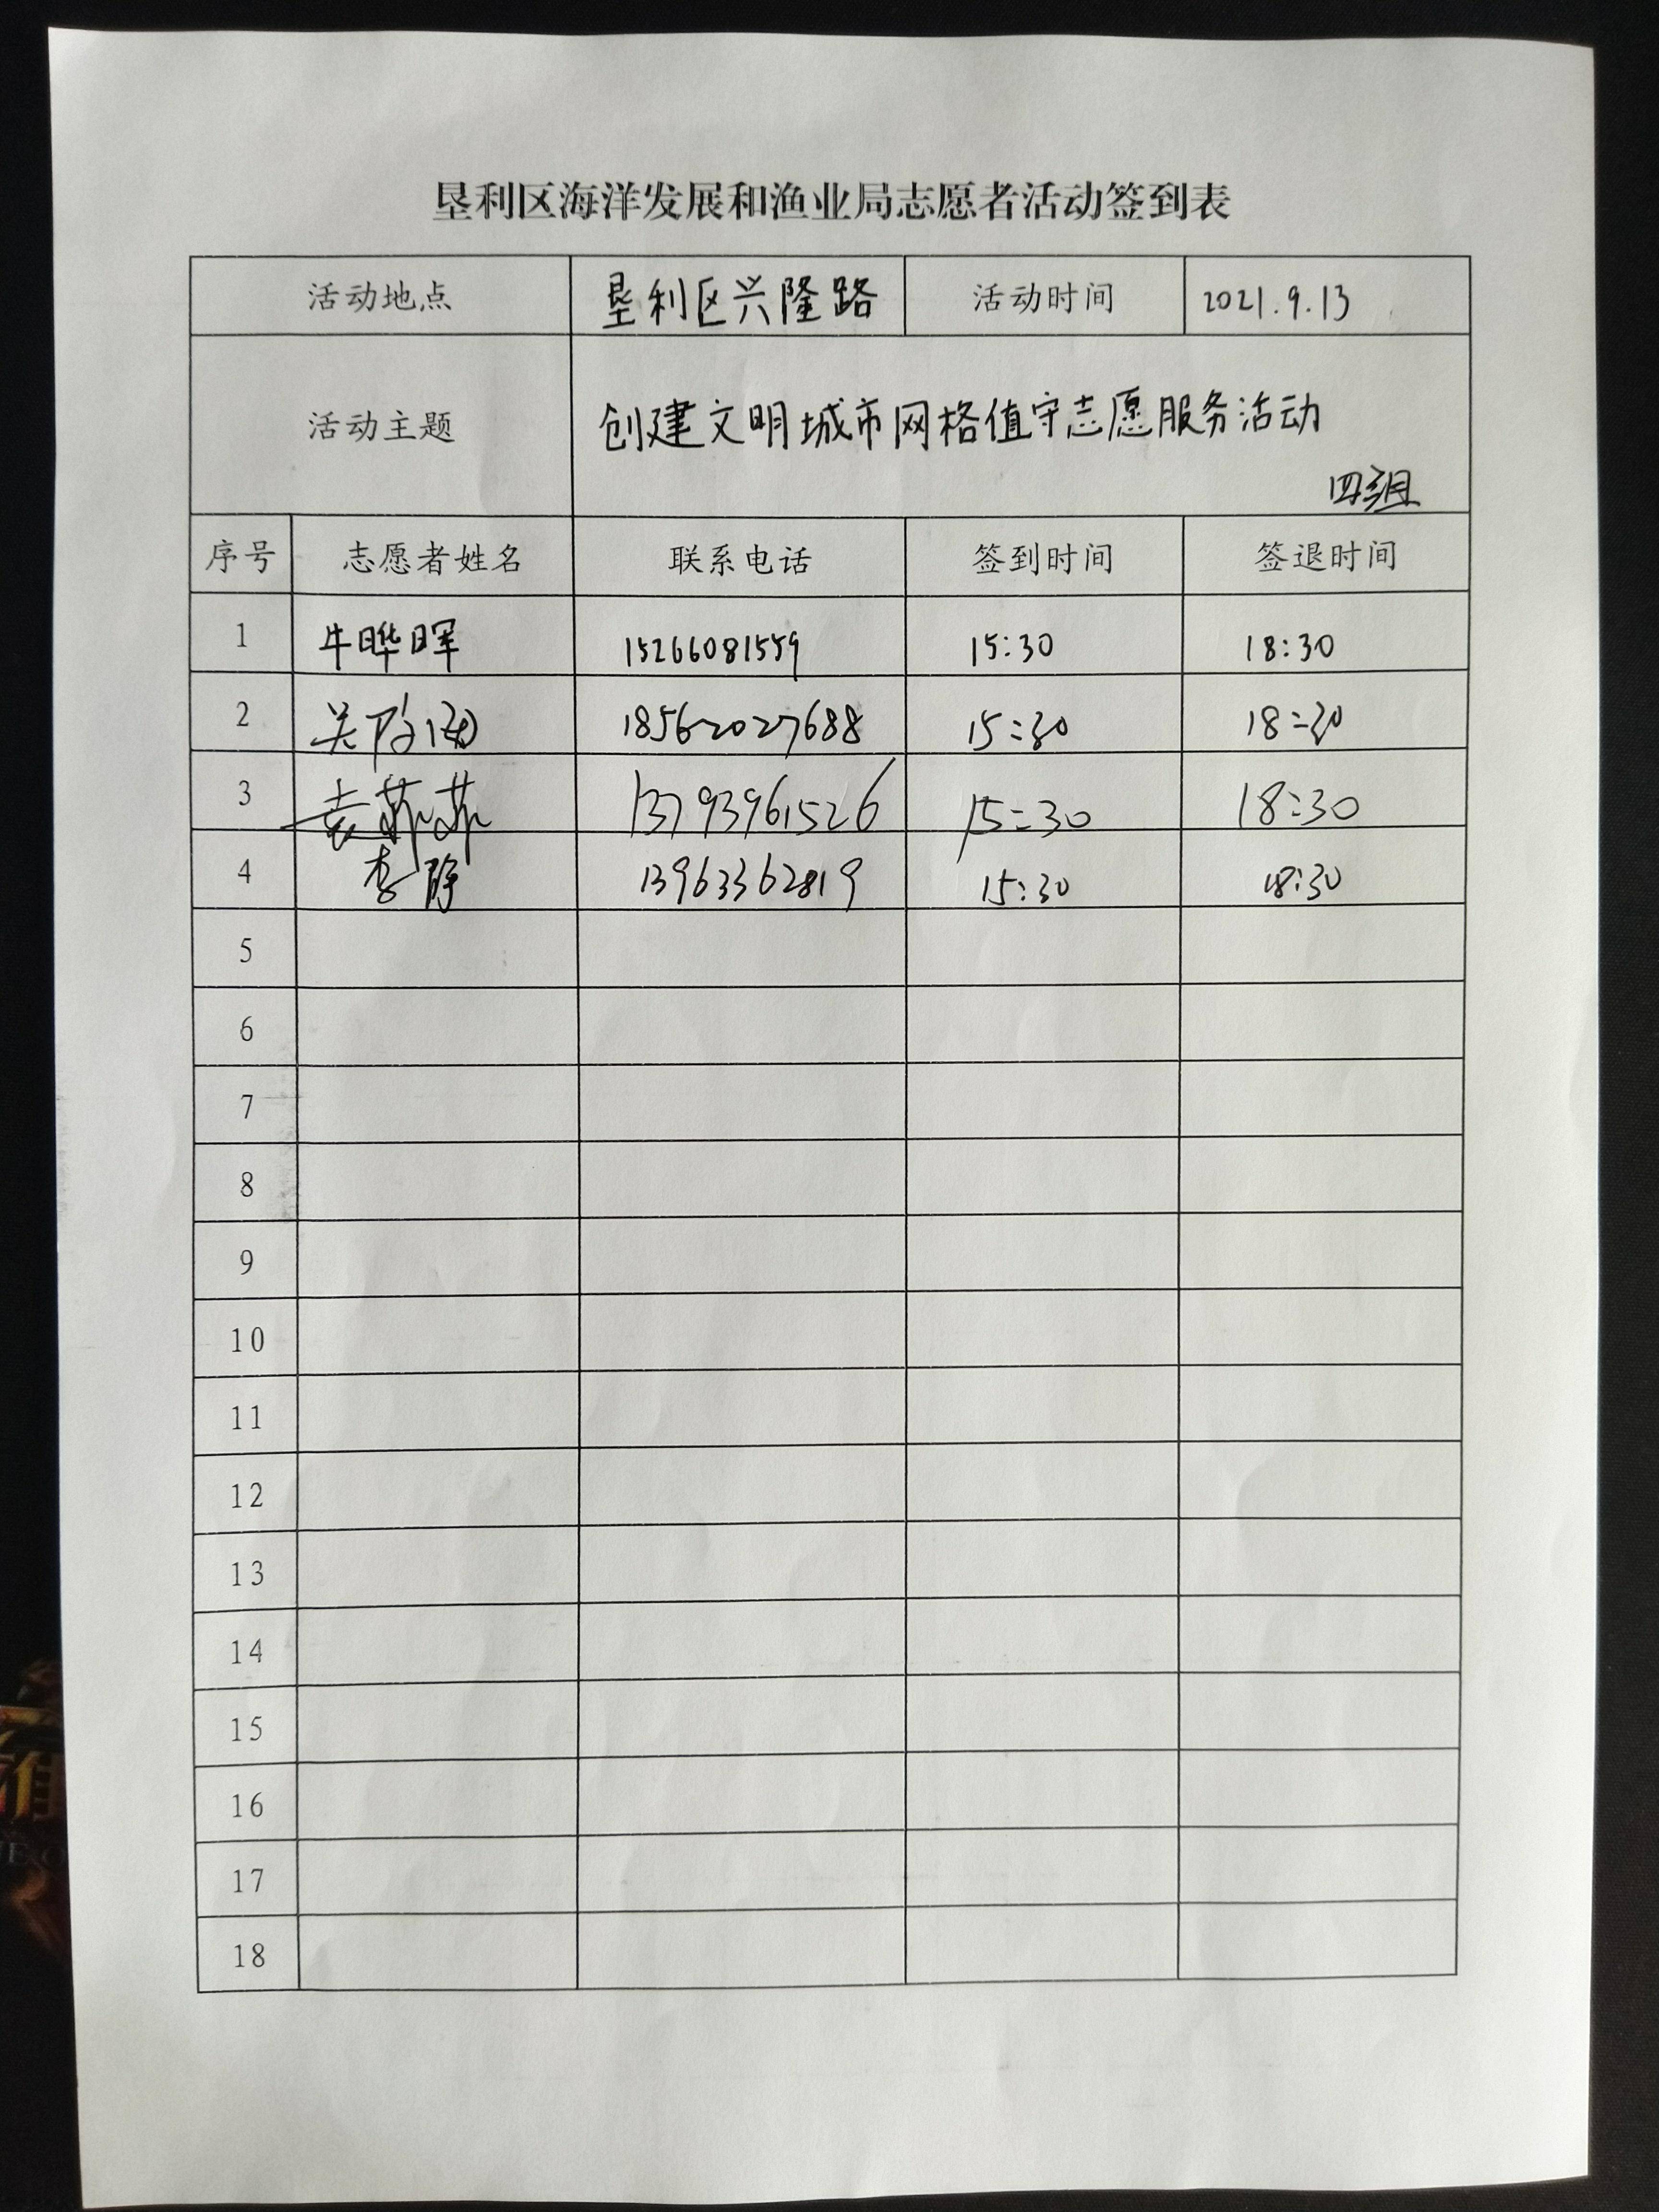 垦利区海洋发展和渔业局志愿者活动签到表
活动地点 垦利区兴隆路 活动时间 2021.9.13
活动主题 创建文明城市网格值守志愿服务活动
四组
序号 志愿者姓名 联系电话 签到时间 签退时间
1 牛晔晖 15266081559 15:30 18:30
2 18562027688 15:30 18:30
3 袁菲菲 13793961526 15:30 18:30
4 李静 13963362819 15:30 18:30
5
6
7
8
9
10
11
12
13
14
15
16
17
18